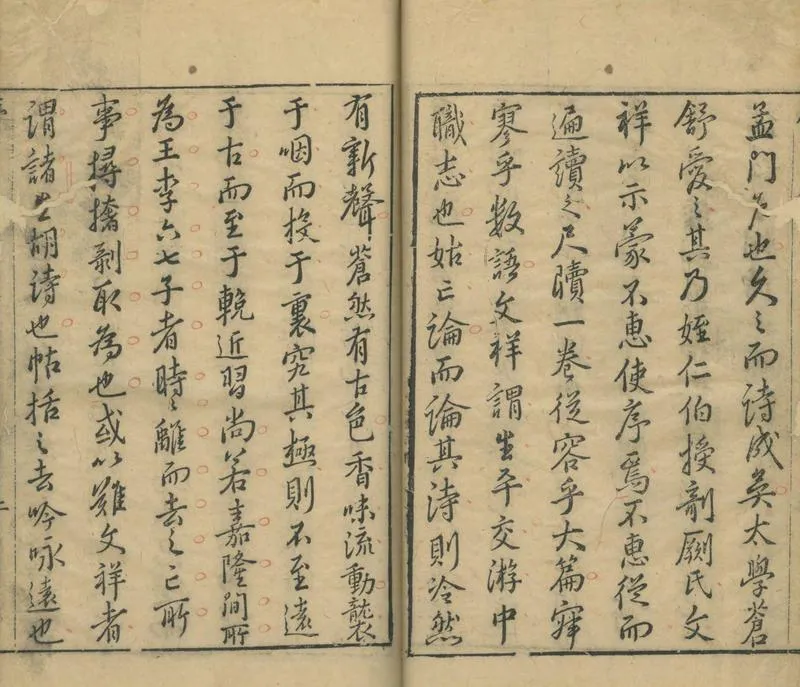 孟門戶也久之而詩成吳太學蒼
舒愛之其乃姪仁伯授剞劂氏文
祥以示蒙不惠使序焉不惠從而
遍讀之尺牘一卷從容乎大篇寂
寥乎數語文祥謂生平交游中
職志也姑亡論而論其詩則泠然
有新聲蒼然有古色香味流動襲
于咽而投于裏究其極則不至遠
于古而至于輓近習尚若嘉隆間所
為王李六七子者時時離而去之亡所
事撏撦剝取為也或以難文祥者
謂諸生胡詩也帖括之去吟咏遠也